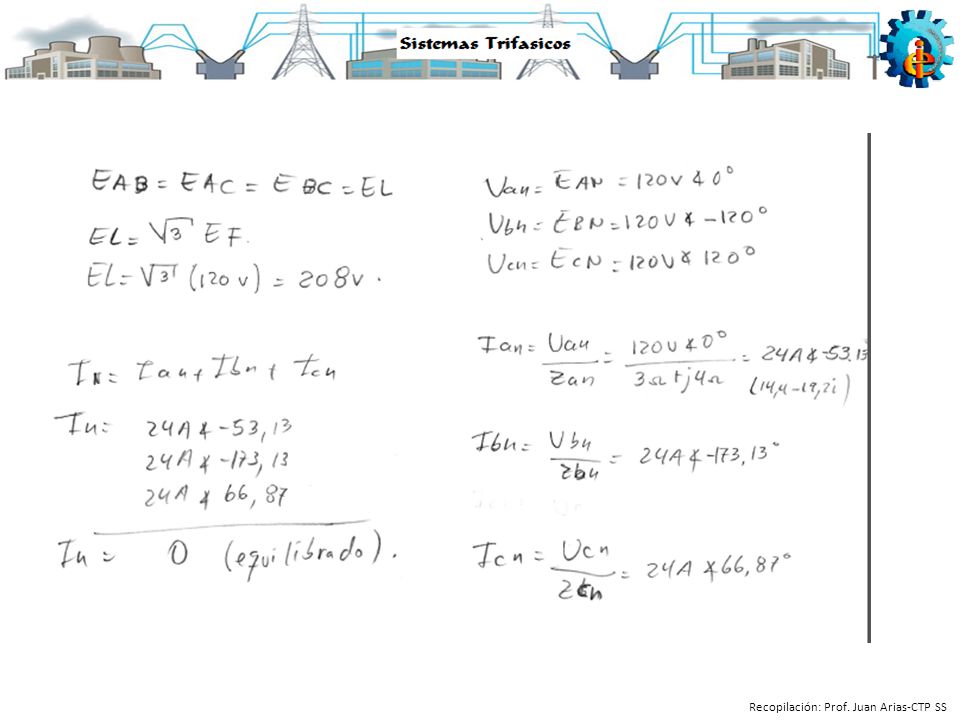 Sistemas Trifasicos
EAB = EAC = EBC = EL
EL = √3 EF.
EL = √3 (120 v) = 208v.
IN = Ian + Ibn + Icn
In = 24A∡-53,13
24A∡-173,13
24A∡66,87
In = 0 (equilibrado).
Van = EAN = 120V∡0°
Vbn = EBN = 120V∡-120°
Vcn = ECN = 120V∡120°
Ian = Van/Zan = 120V∡0°/3Ω+j4Ω = 24A∡-53,13
(14,4-19,2i)
Ibn = Vbn/Zbn = 24A∡-173,13°
Icn = Vcn/Zcn = 24A∡66,87°
Recopilación: Prof. Juan Arias-CTP SS